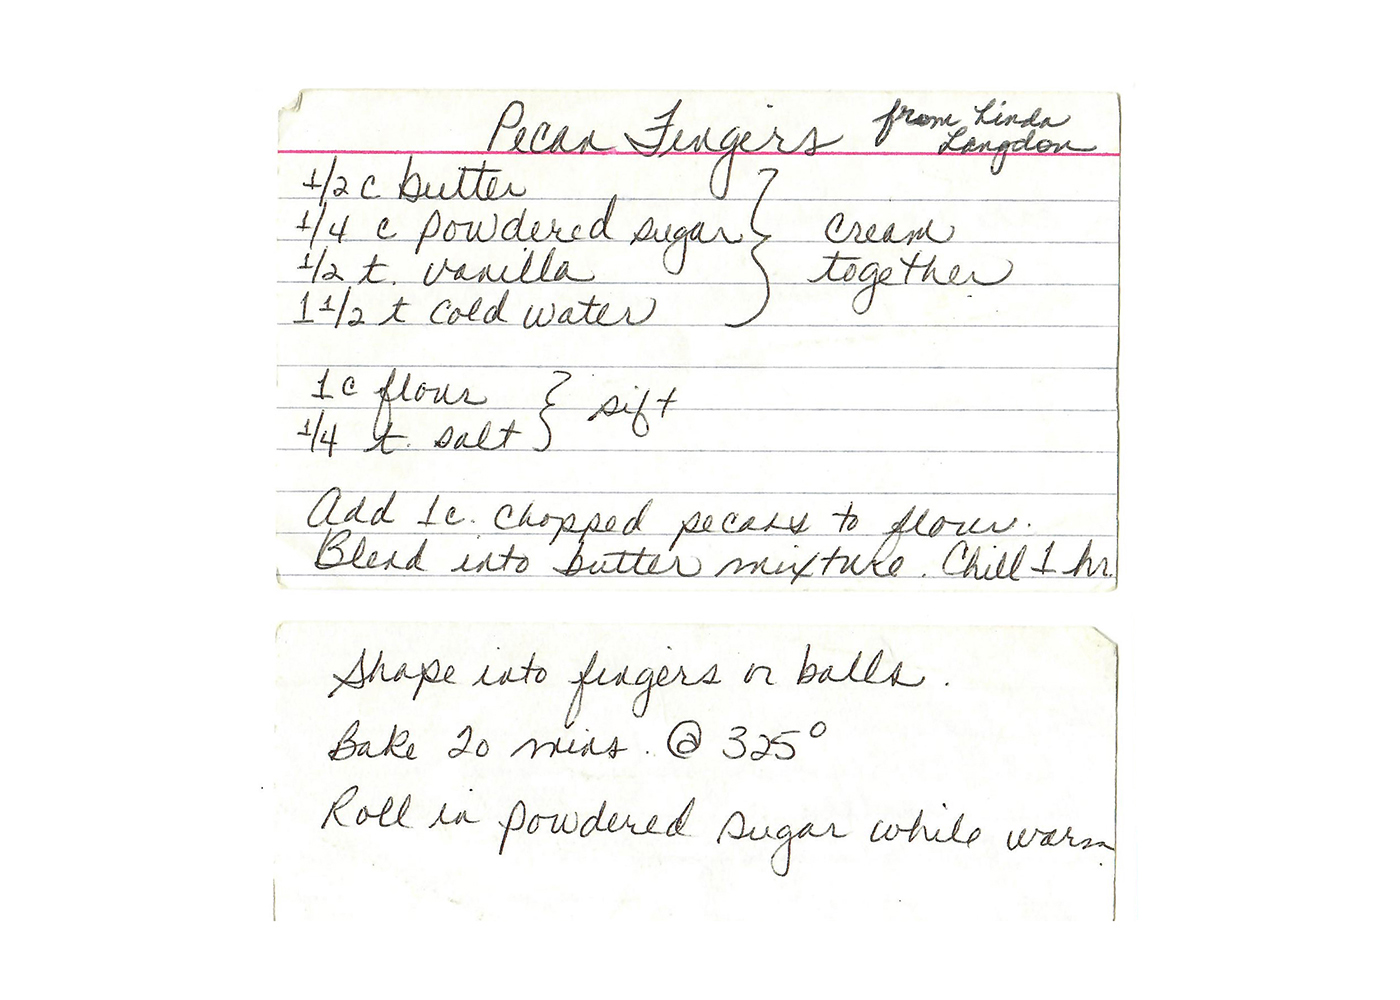 Pecan Fingers from Linda
Langdon
1/2 c butter
1/4 c powdered sugar } cream
1/2 t. vanilla together
1 1/2 t cold water
1 c flour } sift
1/4 t. salt
Add 1 c. chopped pecans to flour.
Blend into butter mixture. Chill 1 hr.
Shape into fingers or balls.
Bake 20 mins. @ 325°
Roll in powdered sugar while warm.